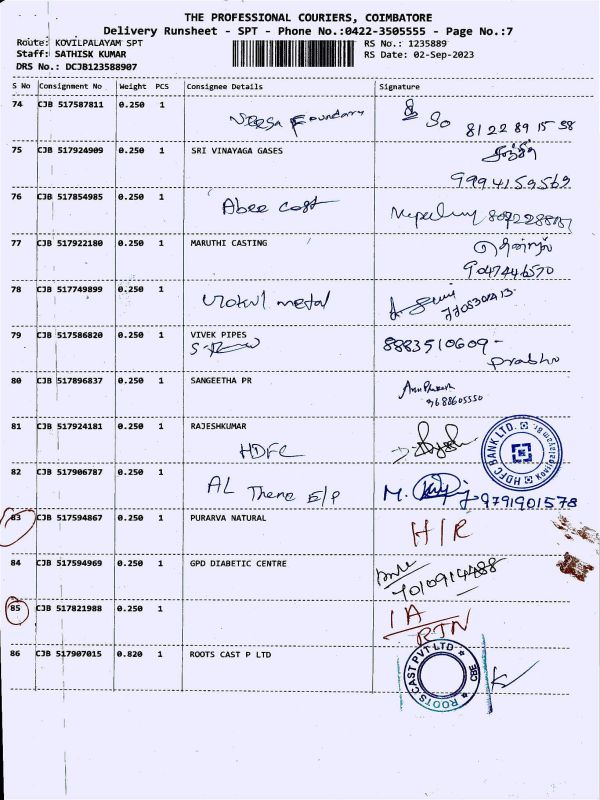 THE PROFESSIONAL COURIERS, COIMBATORE
Delivery Runsheet - SPT - Phone No.:0422-3505555 - Page No.:7
Route: KOVILPALAYAM SPT RS No.: 1235889
Staff: SATHISK KUMAR RS Date: 02-Sep-2023
DRS No.: DCJB123588907
S No Consignment No Weight PCS Consignee Details Signature
74 CJB 517587811 0.250 1 Foundary 81 22 89 15 58
75 CJB 517924909 0.250 1 SRI VINAYAGA GASES
9994159569
76 CJB 517854985 0.250 1 Abee cast
77 CJB 517922180 0.250 1 MARUTHI CASTING
9047446570
78 CJB 517749899 0.250 1 metal
79 CJB 517586820 0.250 1 VIVEK PIPES 8883510609 -
Prabhu
80 CJB 517896837 0.250 1 SANGEETHA PR
9688605550
81 CJB 517924181 0.250 1 RAJESHKUMAR
HDFC
HDFC BANK LTD. Kovilpalayam Br.
82 CJB 517906787 0.250 1 AL Thene E/P M. 9791901578
83 CJB 517594867 0.250 1 PURARVA NATURAL H/R
84 CJB 517594969 0.250 1 GPD DIABETIC CENTRE
7010914488
85 CJB 517821988 0.250 1 IA
RTN
86 CJB 517907015 0.820 1 ROOTS CAST P LTD
ROOTS CAST PVT LTD CBE